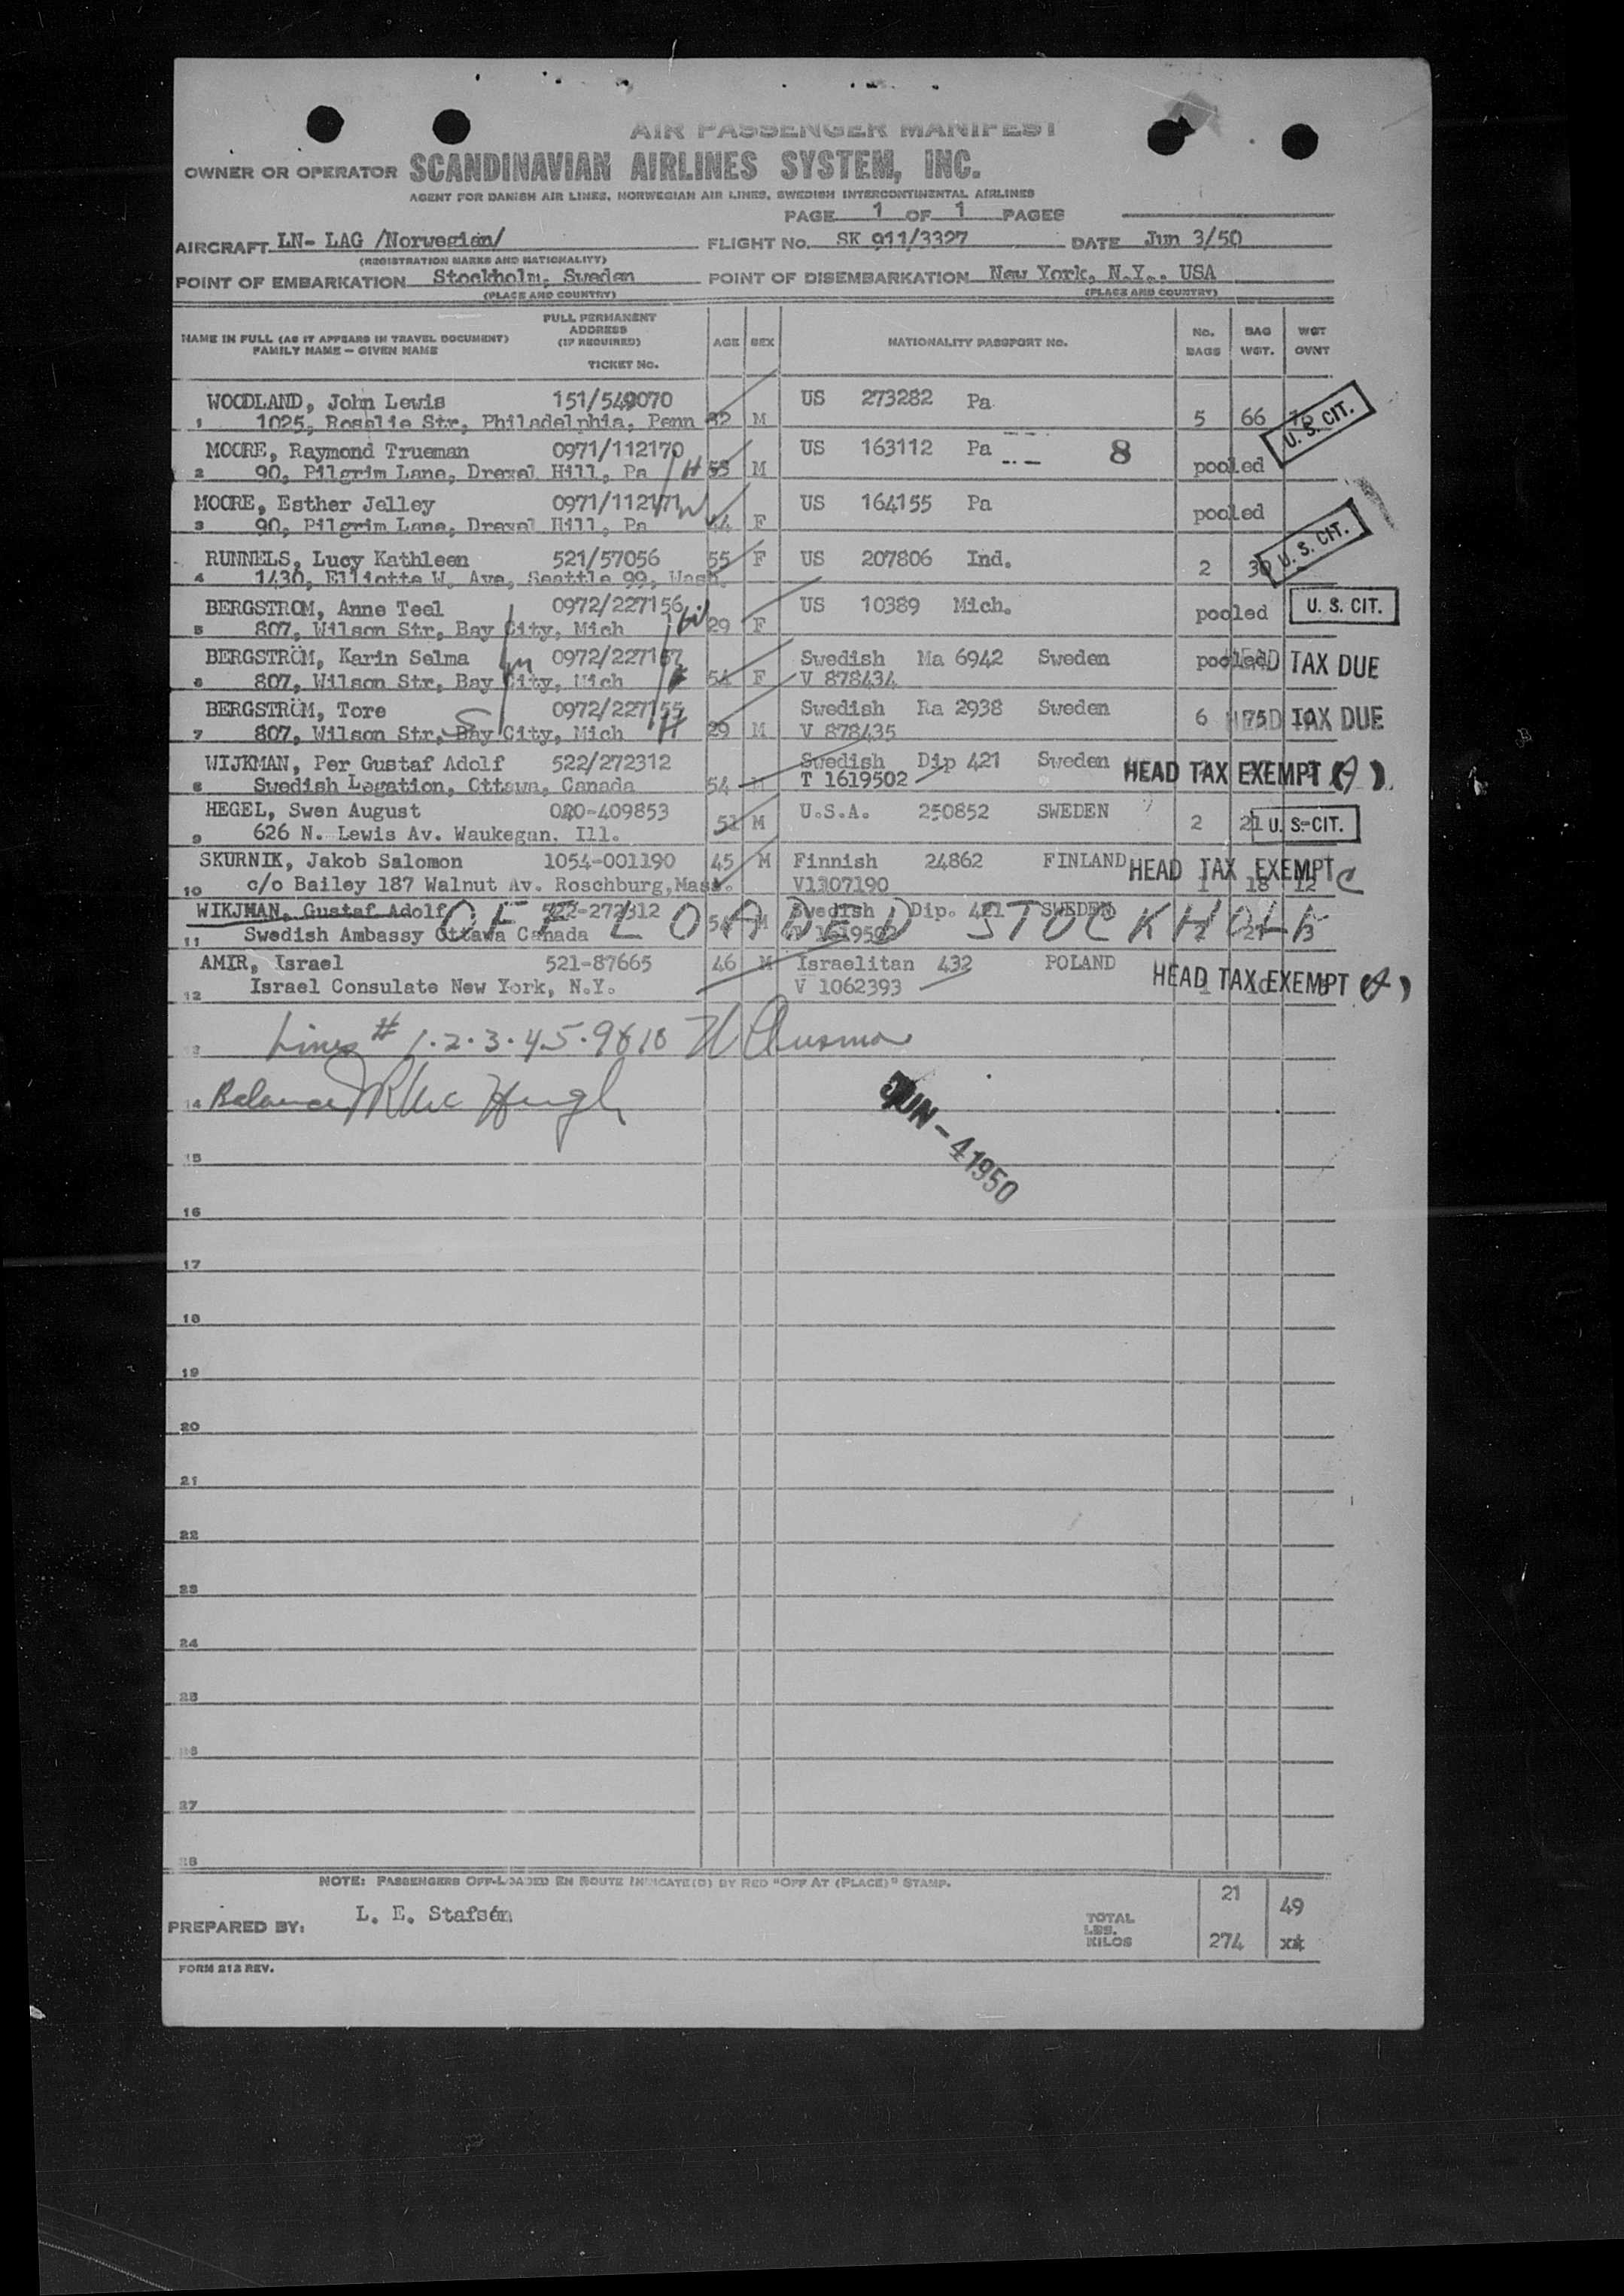 AIR PASSENGER MANIFEST
OWNER OR OPERATOR SCANDINAVIAN AIRLINES SYSTEM, INC.
AGENT FOR DANISH AIR LINES, NORWEGIAN AIR LINES, SWEDISH INTERCONTINENTAL AIRLINES
PAGE 1 OF 1 PAGES
AIRCRAFT LN- LAG /Norwegian/ FLIGHT No. SK 911/3327 DATE Jun 3/50
(REGISTRATION MARKS AND NATIONALITY)
POINT OF EMBARKATION Stockholm, Sweden POINT OF DISEMBARKATION New York, N.Y., USA
(PLACE AND COUNTRY) (PLACE AND COUNTRY)
NAME IN FULL (AS IT APPEARS IN TRAVEL DOCUMENT)
FAMILY NAME – GIVEN NAME
FULL PERMANENT
ADDRESS
(IF REQUIRED)
TICKET No.
AGE SEX NATIONALITY PASSPORT NO.
No.
BAGS
BAG
WGT.
WGT
OVNT
WOODLAND, John Lewis 151/549070 US 273282 Pa
1 1025, Rosalie Str, Philadelphia, Penn 32 M 5 66 U. S. CIT.
MOORE, Raymond Trueman 0971/112170 US 163112 Pa 8
2 90, Pilgrim Lane, Drexel Hill, Pa H 53 M pooled
MOORE, Esther Jelley 0971/112171 W US 164155 Pa
3 90, Pilgrim Lane, Drexel Hill, Pa 44 F pooled
RUNNELS, Lucy Kathleen 521/57056 55 F US 207806 Ind.
4 1430, Elliotte W. Ave, Seattle 99, Wash. 2 30 U. S. CIT.
BERGSTROM, Anne Teal 0972/227156 US 10389 Mich.
5 807, Wilson Str, Bay City, Mich W 29 F pooled U. S. CIT.
BERGSTRÖM, Karin Selma 0972/227157 Swedish Ma 6942 Sweden
6 807, Wilson Str, Bay City, Mich 54 F V 878434 pooled HEAD TAX DUE
BERGSTRÖM, Tore 0972/227155 Swedish Ra 2938 Sweden
7 807, Wilson Str, Bay City, Mich H 29 M V 878435 6 75 HEAD TAX DUE
WIJKMAN, Per Gustaf Adolf 522/272312 Swedish Dip 421 Sweden
8 Swedish Legation, Ottawa, Canada 54 M T 1619502 HEAD TAX EXEMPT (A)
HEGEL, Swen August 020-409853 U.S.A. 250852 SWEDEN
9 626 N. Lewis Av. Waukegan. Ill. 51 M 2 21 U. S. CIT.
SKURNIK, Jakob Salomon 1054-001190 45 M Finnish 24862 FINLAND HEAD TAX EXEMPT C
10 c/o Bailey 187 Walnut Av. Roschburg, Mass. V1307190 1 18 12
WIKJMAN, Gustaf Adolf 522-272312 54 M Swedish Dip. 421 SWEDEN
OFF LOADED STOCKHOLM
11 Swedish Ambassy Ottawa Canada 1619502
AMIR, Israel 521-87665 46 M Israelitan 432 POLAND
12 Israel Consulate New York, N.Y. V 1062393 HEAD TAX EXEMPT (A)
13 Lines # 1.2.3.4.5.9&10
14 Balance
JUN - 4 1950
15
16
17
18
19
20
21
22
23
24
25
26
27
28
NOTE: PASSENGERS OFF-LOADED EN ROUTE INDICATE(D) BY RED "OFF AT (PLACE)" STAMP.
PREPARED BY: L. E. Stafsén
TOTAL
LBS.
KILOS
21 49
274 xx
FORM 212 REV.